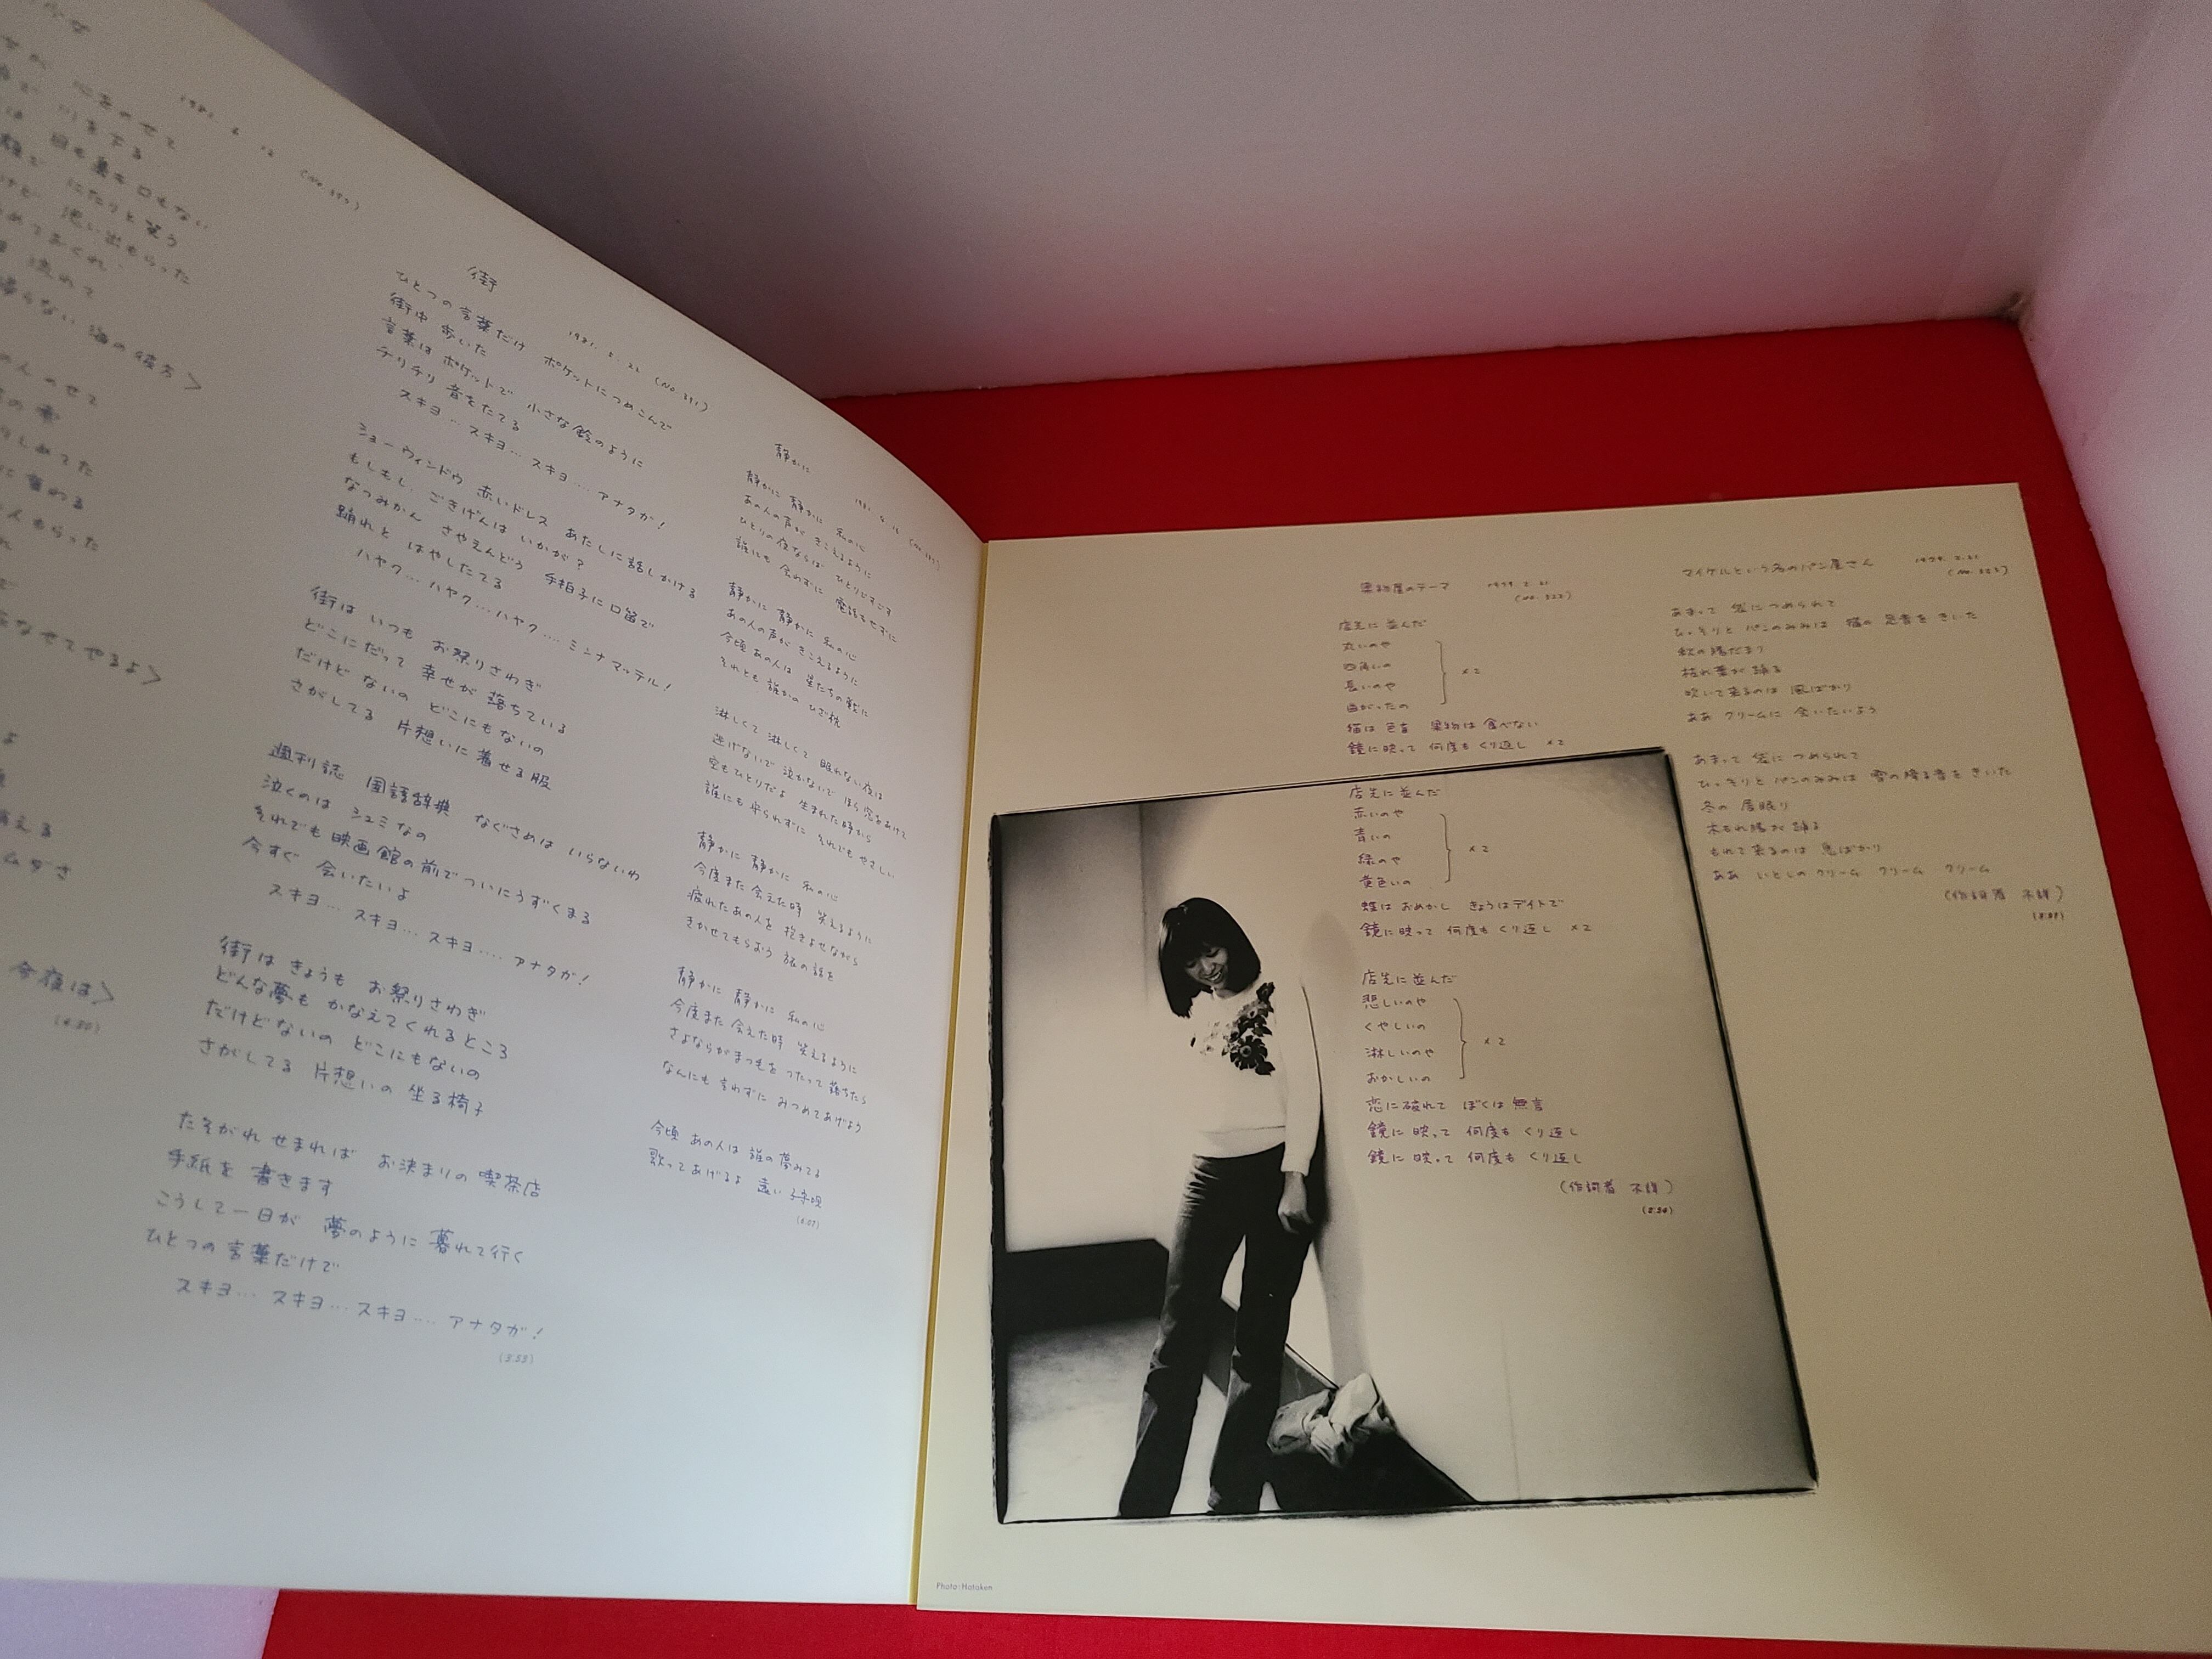 心をのせて
川を下る
目も鼻も口もない
にたりと笑う
思い出もらった
めておくれ
流れて
帰らない 海の彼方>
人のせて
なせてやるよ>
消える
ムダさ
今夜は>
(4.20)
街
1981. 5. 21 (No.391)
ひとつの言葉だけ ポケットにつめこんで
街中 歩いた
言葉は ポケットで 小さな鈴のように
チリチリ 音をたてる
スキヨ… スキヨ… スキヨ…. アナタが!
ショーウィンドウ 赤いドレス あたしに話しかける
もしもし. ごきげんは いかが?
なつみかん さやえんどう 手拍子に口笛で
踊れと はやしたてる
ハヤク… ハヤク… ハヤク…. ミンナマッテル!
街は いつも お祭りさわぎ
どこにだって 幸せが 落ちている
だけど ないの どこにもないの
さがしてる 片想いに 着せる服
週刊誌 国語辞典 なぐさめは いらないわ
泣くのは シュミなの
それでも映画館の前で ついにうずくまる
今すぐ 会いたいよ
スキヨ… スキヨ… スキヨ….. アナタが!
街は きょうも お祭りさわぎ
どんな夢も かなえてくれるところ
だけど ないの どこにもないの
さがしてる 片想いの 坐る椅子
たそがれ せまれば お決まりの 喫茶店
手紙を 書きます
こうして一日が 夢のように 暮れて行く
ひとつの 言葉だけで
スキヨ… スキヨ… スキヨ…. アナタが!
(3.55)
静かに
静かに 静かに 私の心
あの人の声が きこえるように
ひとりの夜ならば ひとりですごす
誰にも 会わずに 電話もせずに
静かに 静かに 私の心
あの人の声が きこえるように
今頃 あの人は 星たちの歌に
それとも 誰かの ひざ枕
淋しくて 淋しくて 眠れない夜は
逃げないで 泣かないで ほら 窓をあけて
空もひとりだよ 生まれた時から
誰にも 守られずに それでも やさしい
静かに 静かに 私の心
今度また 会えた時 笑えるように
疲れたあの人を 抱きよせながら
きかせてもらおう 旅の話を
静かに 静かに 私の心
今度また 会えた時 笑えるように
さよならが まつ毛を つたって 落ちたら
なんにも 言わずに みつめてあげよう
今頃 あの人は 誰の夢みてる
歌ってあげるよ 遠い 子守唄
(4.07)
果物屋のテーマ 1979. 2. 21
(No. 322)
店先に並んだ
丸いのや
四角いの
長いのや
曲がったの
×2
猫は 色盲 果物は 食べない
鏡に映って 何度も くり返し ×2
店先に並んだ
赤いのや
青いの
緑のや
黄色いの
×2
蛙は おめかし きょうはデイトで
鏡に映って 何度も くり返し ×2
店先に並んだ
悲しいのや
くやしいの
淋しいのや
おかしいの
×2
恋に破れて ぼくは 無言
鏡に 映って 何度も くり返し
鏡に 映って 何度も くり返し
(作詞者 不詳)
(2.54)
マイケルという名のパン屋さん 1979. 2. 21
(No. 323)
あまって 袋に つめられて
ひっそりと パンのみみは 猫の 足音を きいた
秋の陽だまり
枯れ葉が 踊る
吹いて来るのは 風ばかり
ああ クリームに 会いたいよう
あまって 袋に つめられて
ひっそりと パンのみみは 雪の降る音を きいた
冬の 居眠り
木もれ陽が 踊る
もれて来るのは 息ばかり
ああ いとしの クリーム クリーム クリーム
(作詞者 不詳)
Photo: Hataken